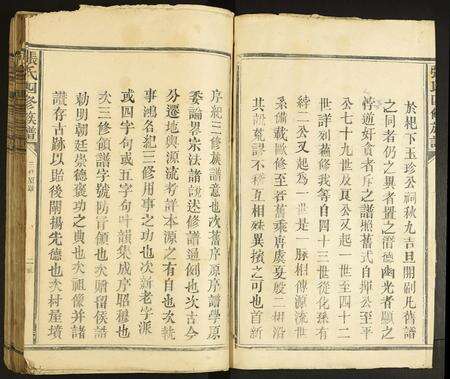 於杞下玉珍公祠秋九吉旦開刷凡舊譜
之同者仍之異者置之潛德幽光者顯之
悖道奸貪者斥之譜照舊式自揮公至平
公七十九世及良公又起一世至四十二
世詳列舊修我等自四十三世從化珠有
終二公又起爲一世是一脉相傳源流世
系備載歐修至各舊乘唐虞夏殷二細沿
其訛亂謬不稽互相殊異擯之可也首新
序紀三修族譜意也次舊序原序譜學原
委論畧宗法諸說述修譜通例也次古今
分遷地輿源流考詳本源之有自也次執
事鴻名紀三修用事之功也次新老字派
或四字句或五字句叶韻集成序昭穆也
次三修領譜字號防盲領也次贈留侯誥
勅明朝廷崇德褒功之典也次祖像并諸
讚存古跡以貽後開揚先德也次村屋墳
張氏四修族譜
張氏四修族譜